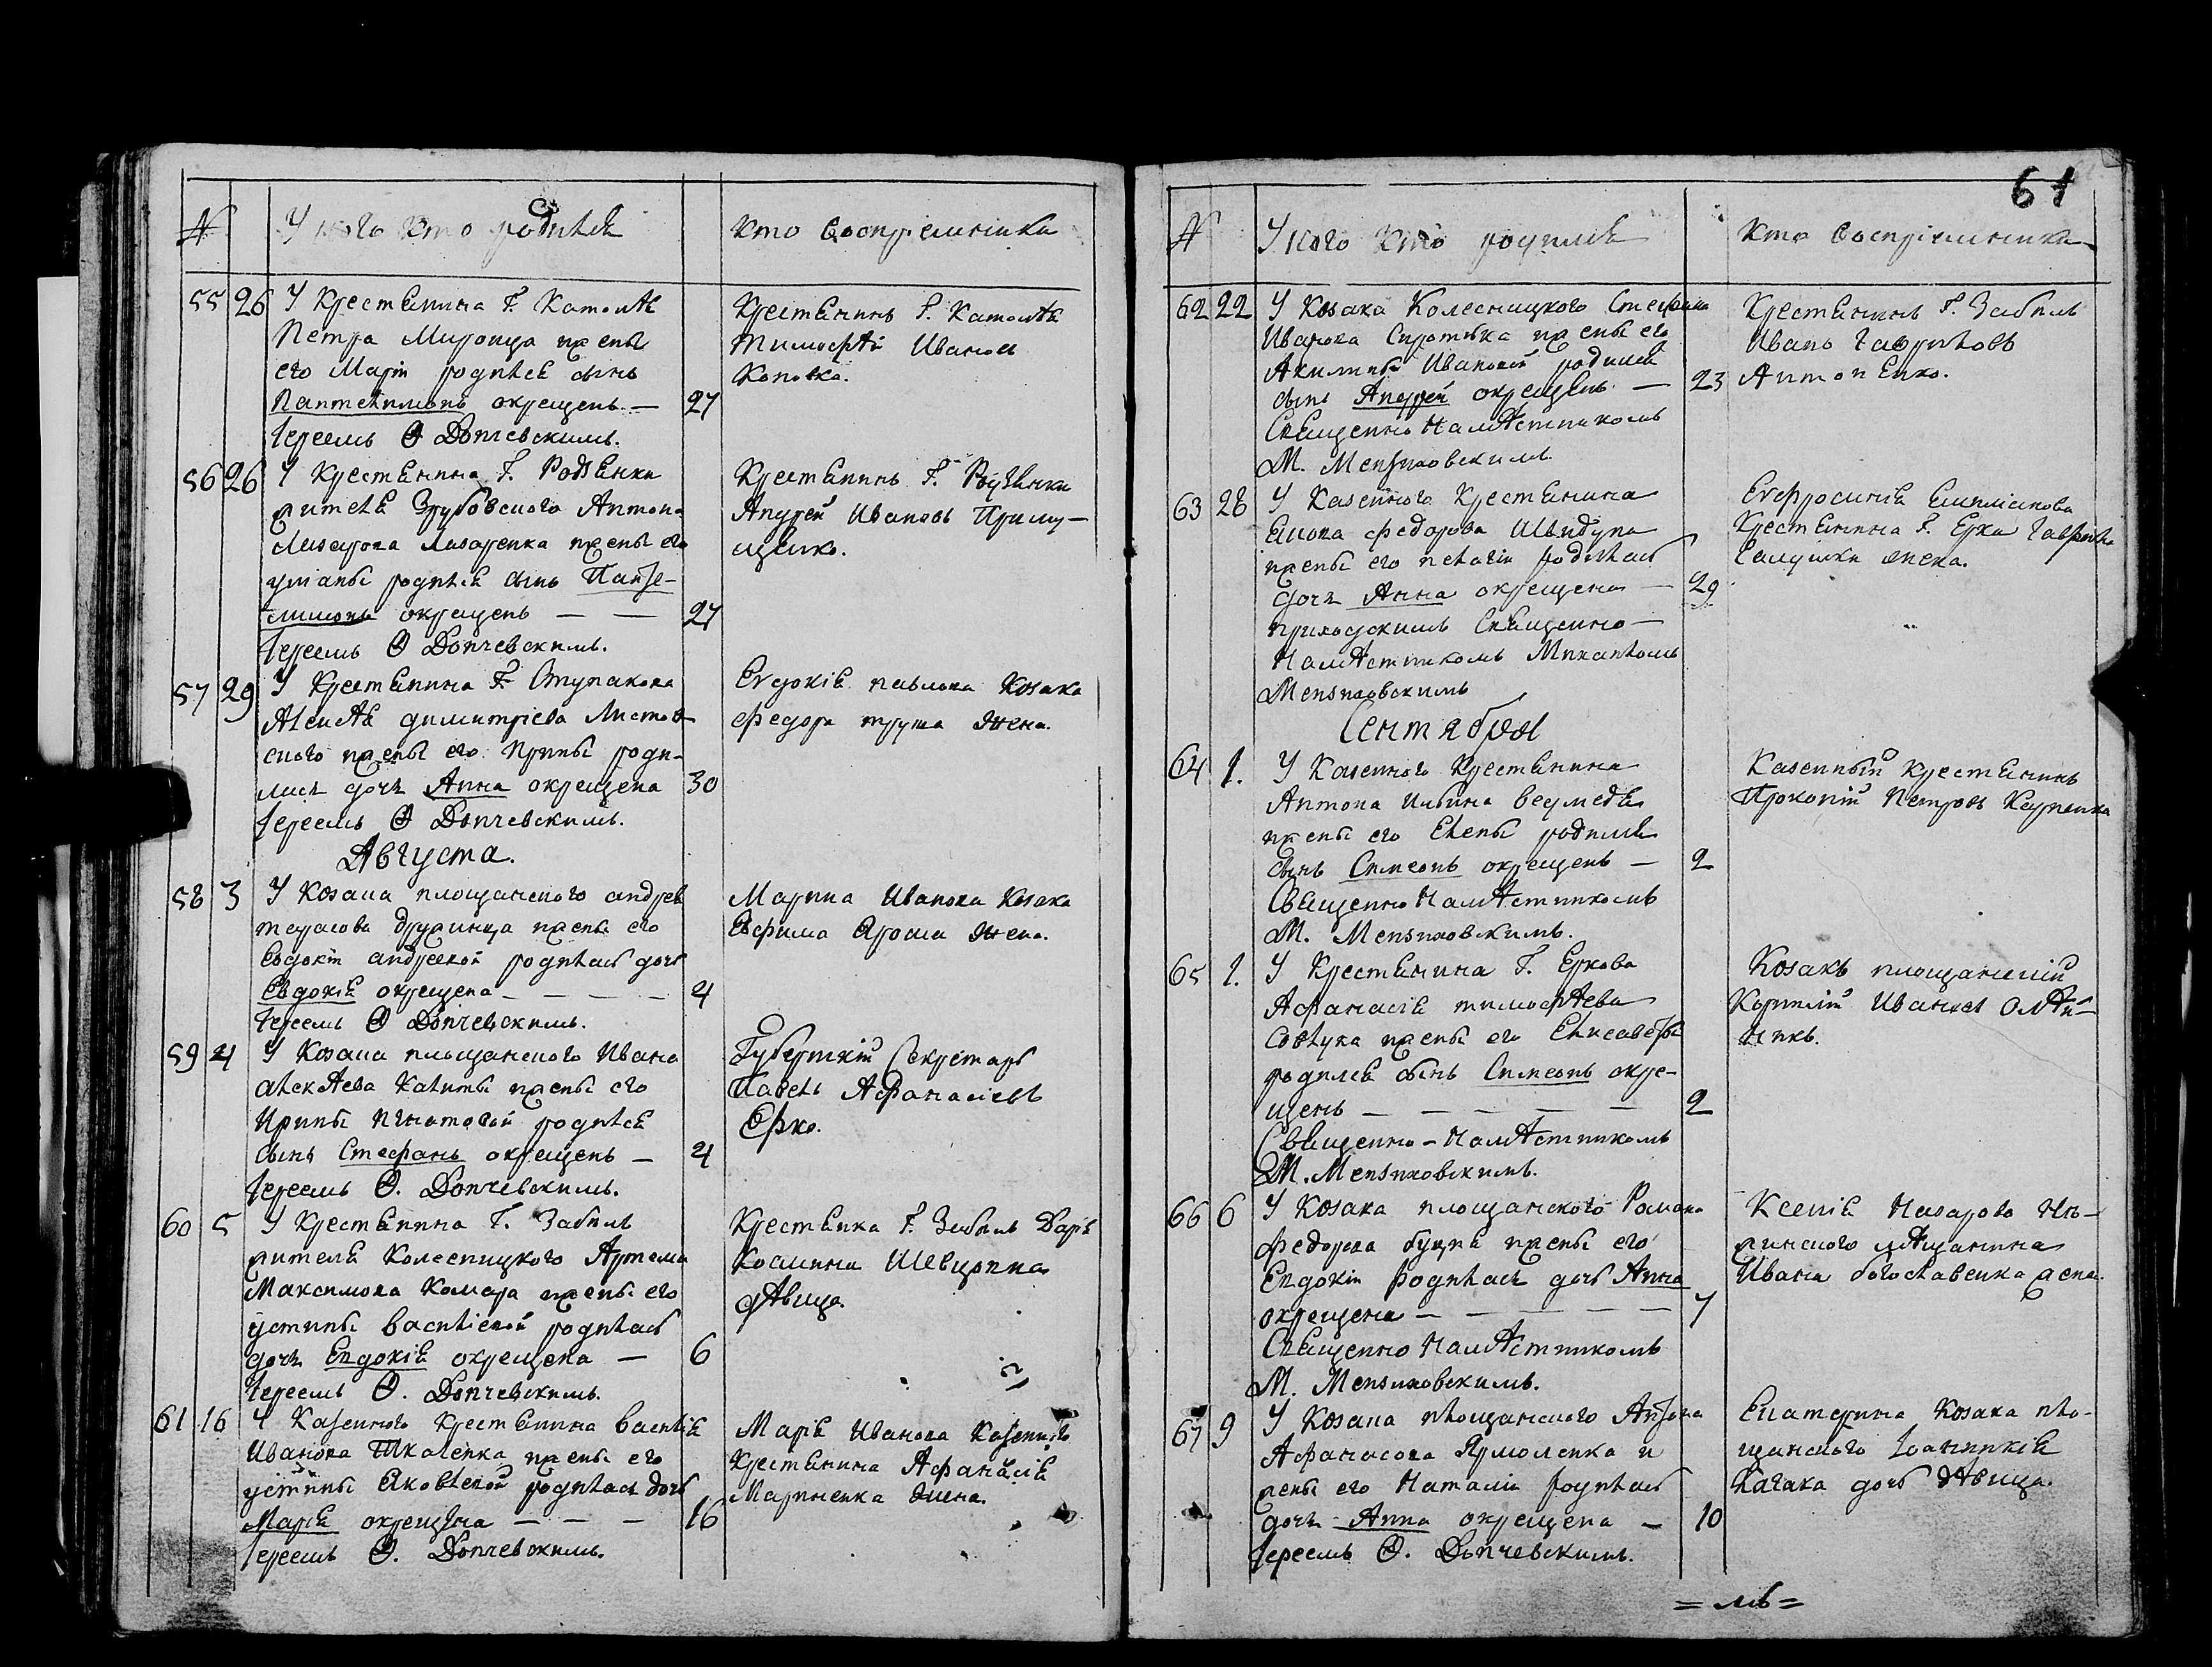 № У кого кто родился кто восприемники
55 26 У Крестянина Г. Катомѣ
Петра Миронца жены
его Маріи родился сынъ
Пантелимонъ окрещенъ — 27
Іереемъ Ѳ Дончевскимъ.
Крестянинъ Г. Катомѣ
Тимофѣй Ивановъ
Коновка.
56 26 У Крестянина Г. Родзянки
жителя Зрубовского Антона
Лазарова Лазаренка жены его
ульяны родился сынъ Панте-
лимонъ окрещенъ — — 27
Іереемъ Ѳ Дончевскимъ.
Крестянинъ Г. Родзянки
Андрей Ивановъ Прину-
щенко.
57 29 У Крестянина Г. Ступакова
Алексѣя димитріева Листов-
ского жены его Ирины роди-
лась дочь Анна окрещена 30
Іереемъ Ѳ Дончевскимъ.
Евдокія павлова Козака
федора труша жена.
Августа.
58 3 У Козака площанского андрея
тарасова дружинца жены его
Евдокіи андреевой родилась дочь
Евдокія окрещена — — — — 4
Іереемъ Ѳ Дончевскимъ.
Марина Иванова Козака
Ефима Яроша жена.
59 4 У Козака площанского Ивана
алексѣева Калиты жены его
Ирины Игнатовой родился
сынъ Стефанъ окрещенъ — 4
Іереемъ Ѳ. Дончевскимъ.
Губернскій Секретарь
Павелъ Афанасіевъ
Ерко.
60 5 У Крестянина Г. Забилы
жителя Колесницкого Артема
Максимова Комара жены его
устины василіевой родилась
дочь Евдокія окрещена — 6
Іереемъ Ѳ. Дончевскимъ.
Крестянка Г. Забилы Дарія
Космина Шевцовна
дѣвица.
61 16 У Казенного Крестянина василія
Иванова Ткаченка жены его
устины Яковлевой родилась дочь
Марія окрещена — — — 16
Іереемъ Ѳ. Дончевскимъ.
Марія Иванова Казенного
Крестянина Афанасія
Мариненка жена.
61
№ У кого кто родился кто восприемники
62 22 У Козака Колесницкого Стефана
Иванова Сиротка жены его
Акилины Ивановой родился
сынъ Андрей окрещенъ — 23
Священно Намѣстникомъ
М. Мензиховскимъ.
Крестянинъ Г. Забилы
Иванъ Гавриловъ
Антоненко.
63 28 У Казенного Крестянина
федорова Швидуна
жены его пелагіи родилась
дочь Анна окрещена — 29
приходскимъ Священно-
Намѣстникомъ Михаиломъ
Мензиховскимъ
Евфросинія Емиліанова
Крестянина Г. Ерка Гаврила
Галушки жена.
Сентября
64 1. У Казенного Крестянина
Антона Ильина ведмедя
жены его Елены родился
сынъ Симеонъ окрещенъ — 2
Священно Намѣстникомъ
М. Мензиховскимъ.
Казенный Крестянинъ
Прокопій Петровъ Карпенко
65 1. У Крестянина Г. Еркова
Афанасія тимофѣева
жены его Елисаветы
родился сынъ Симеонъ окре-
щенъ — — — — — 2
Священно-Намѣстникомъ
М. Мензиховскимъ.
Козакъ площанскій
Корнилій Ивановъ Олѣй-
никъ.
66 6 У Козака площанского Романа
федорова буцня жены его
Евдокіи родилась дочь Анна
окрещена — — — — — 7
Священно Намѣстникомъ
М. Мензиховскимъ.
Ксенія Назарова Нѣ-
жинского мѣщанина
Ивана богославенка жена.
67 9 У Козака площанского Антона
Афанасова Ярмоленка и
жены его Наталіи родилась
дочь Анна окрещена — 10
Іереемъ Ѳ. Дончевскимъ.
Екатерина Козака пло-
щанского Іоанникія
Качака дочь дѣвица.